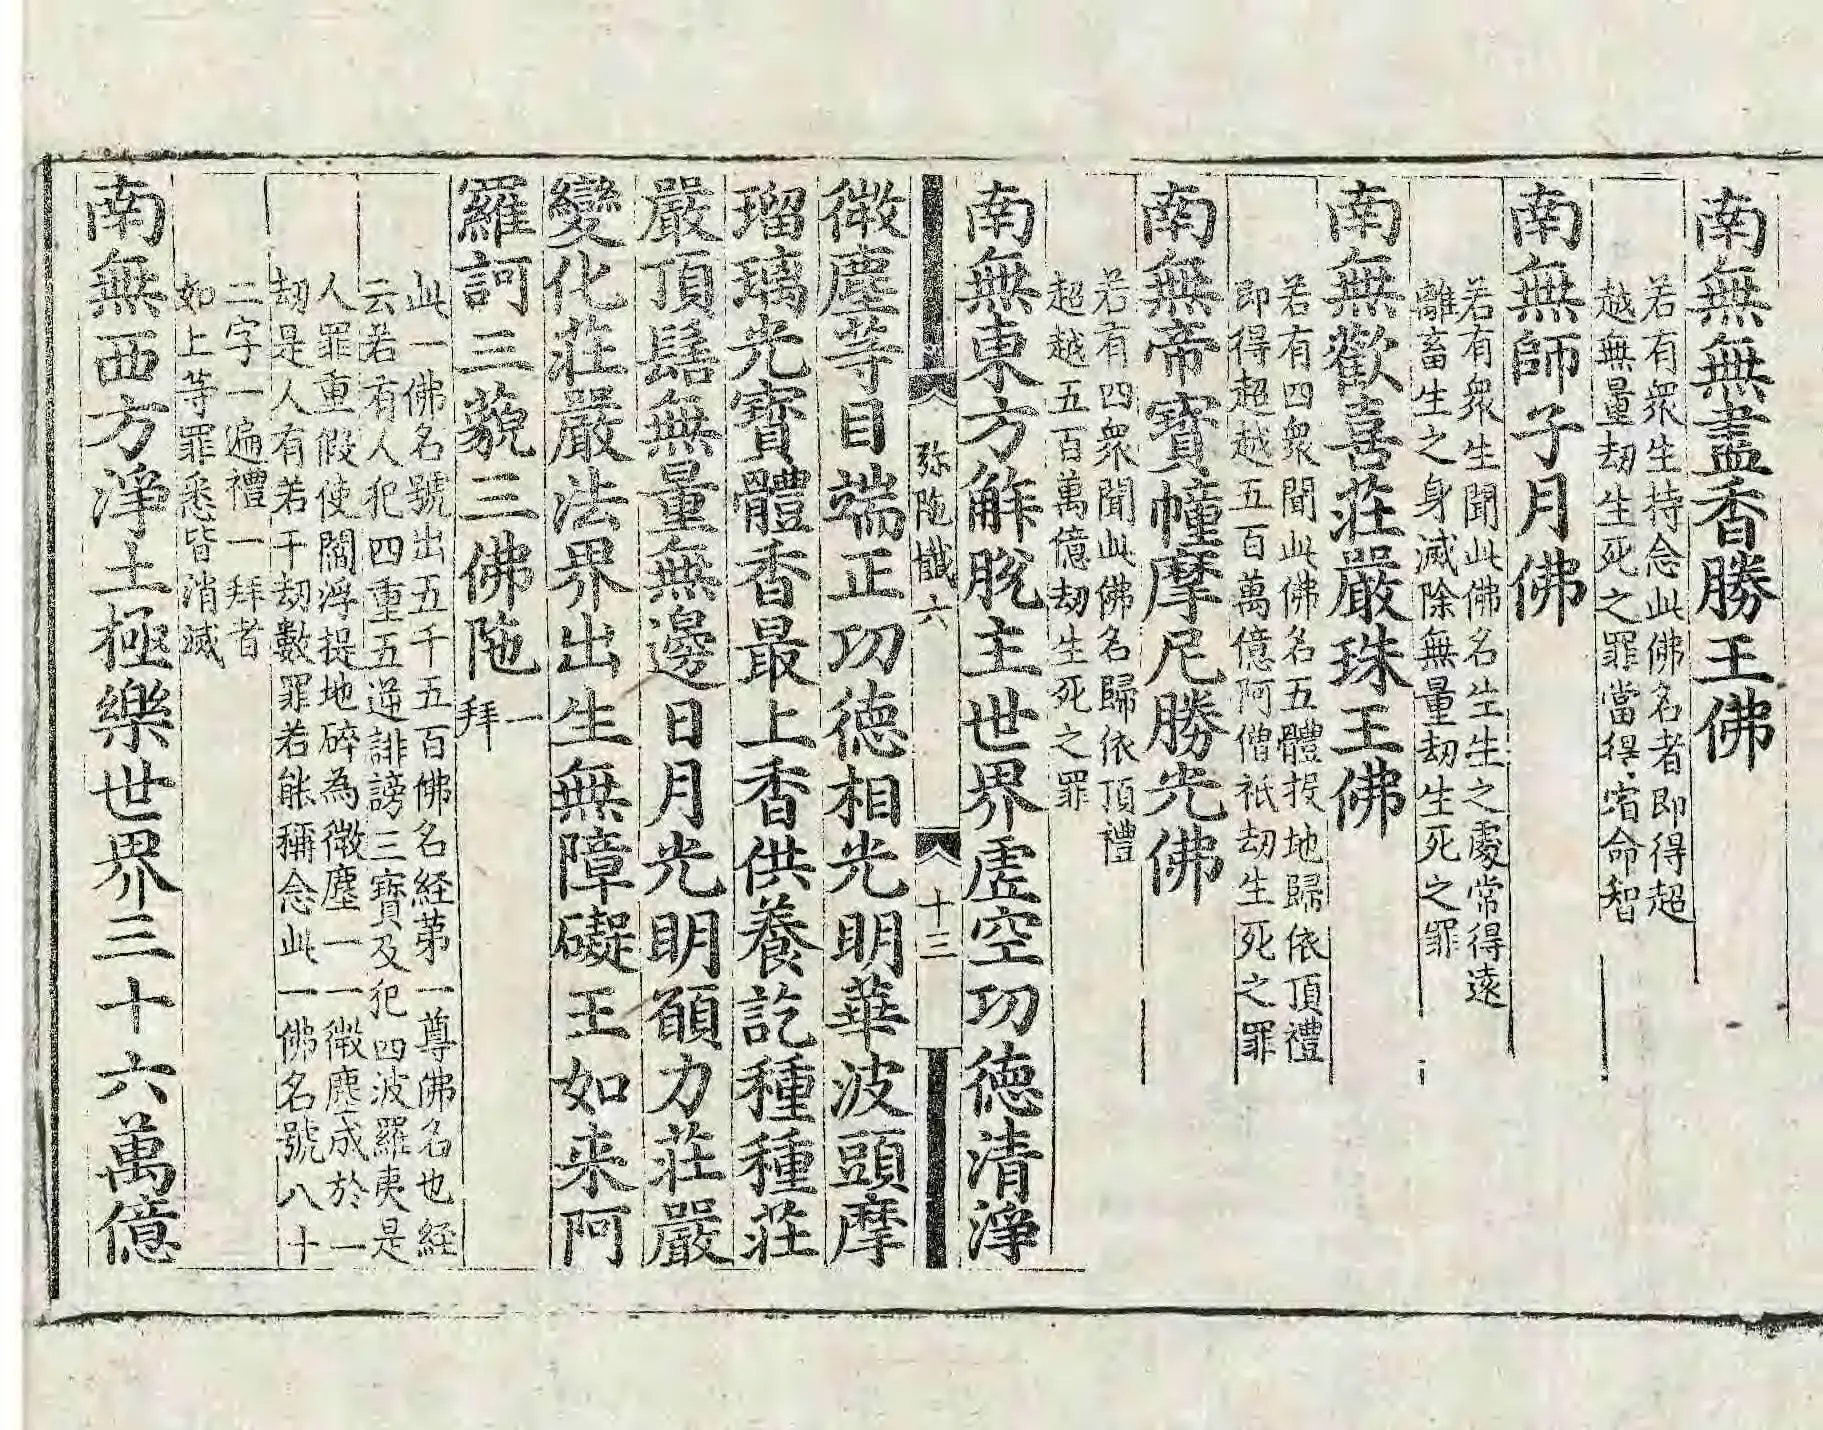 南無無盡香勝王佛
若有衆生持念此佛名者即得超
越無量劫生死之罪當得宿命智
南無師子月佛
若有衆生聞此佛名生生之處常得遠
離畜生之身滅除無量劫生死之罪
南無歡喜莊嚴珠王佛
若有四衆聞此佛名五體投地歸依頂禮
即得超越五百萬億阿僧祇劫生死之罪
南無帝寶幢摩尼勝光佛
若有四衆聞此佛名歸依頂禮
超越五百萬億劫生死之罪
南無東方解脱主世界虛空功德清淨
弥陁懺六
十三
微塵等目端正功德相光明華波頭摩
瑠璃光寶體香最上香供養訖種種莊
嚴頂髻無量無邊日月光明願力莊嚴
變化莊嚴法界出生無障礙王如来阿
羅訶三藐三佛陁一拜
此一佛名號出五千五百佛名経第一尊佛名也経
云若有人犯四重五逆誹謗三寶及犯四波羅夷是
人罪重假使閻浮提地碎為微塵一一微塵成於一
劫是人有若干劫數罪若能稱念此一佛名號八十
二字一遍禮一拜者
如上等罪悉皆消滅
南無西方淨土極樂世界三十六萬億